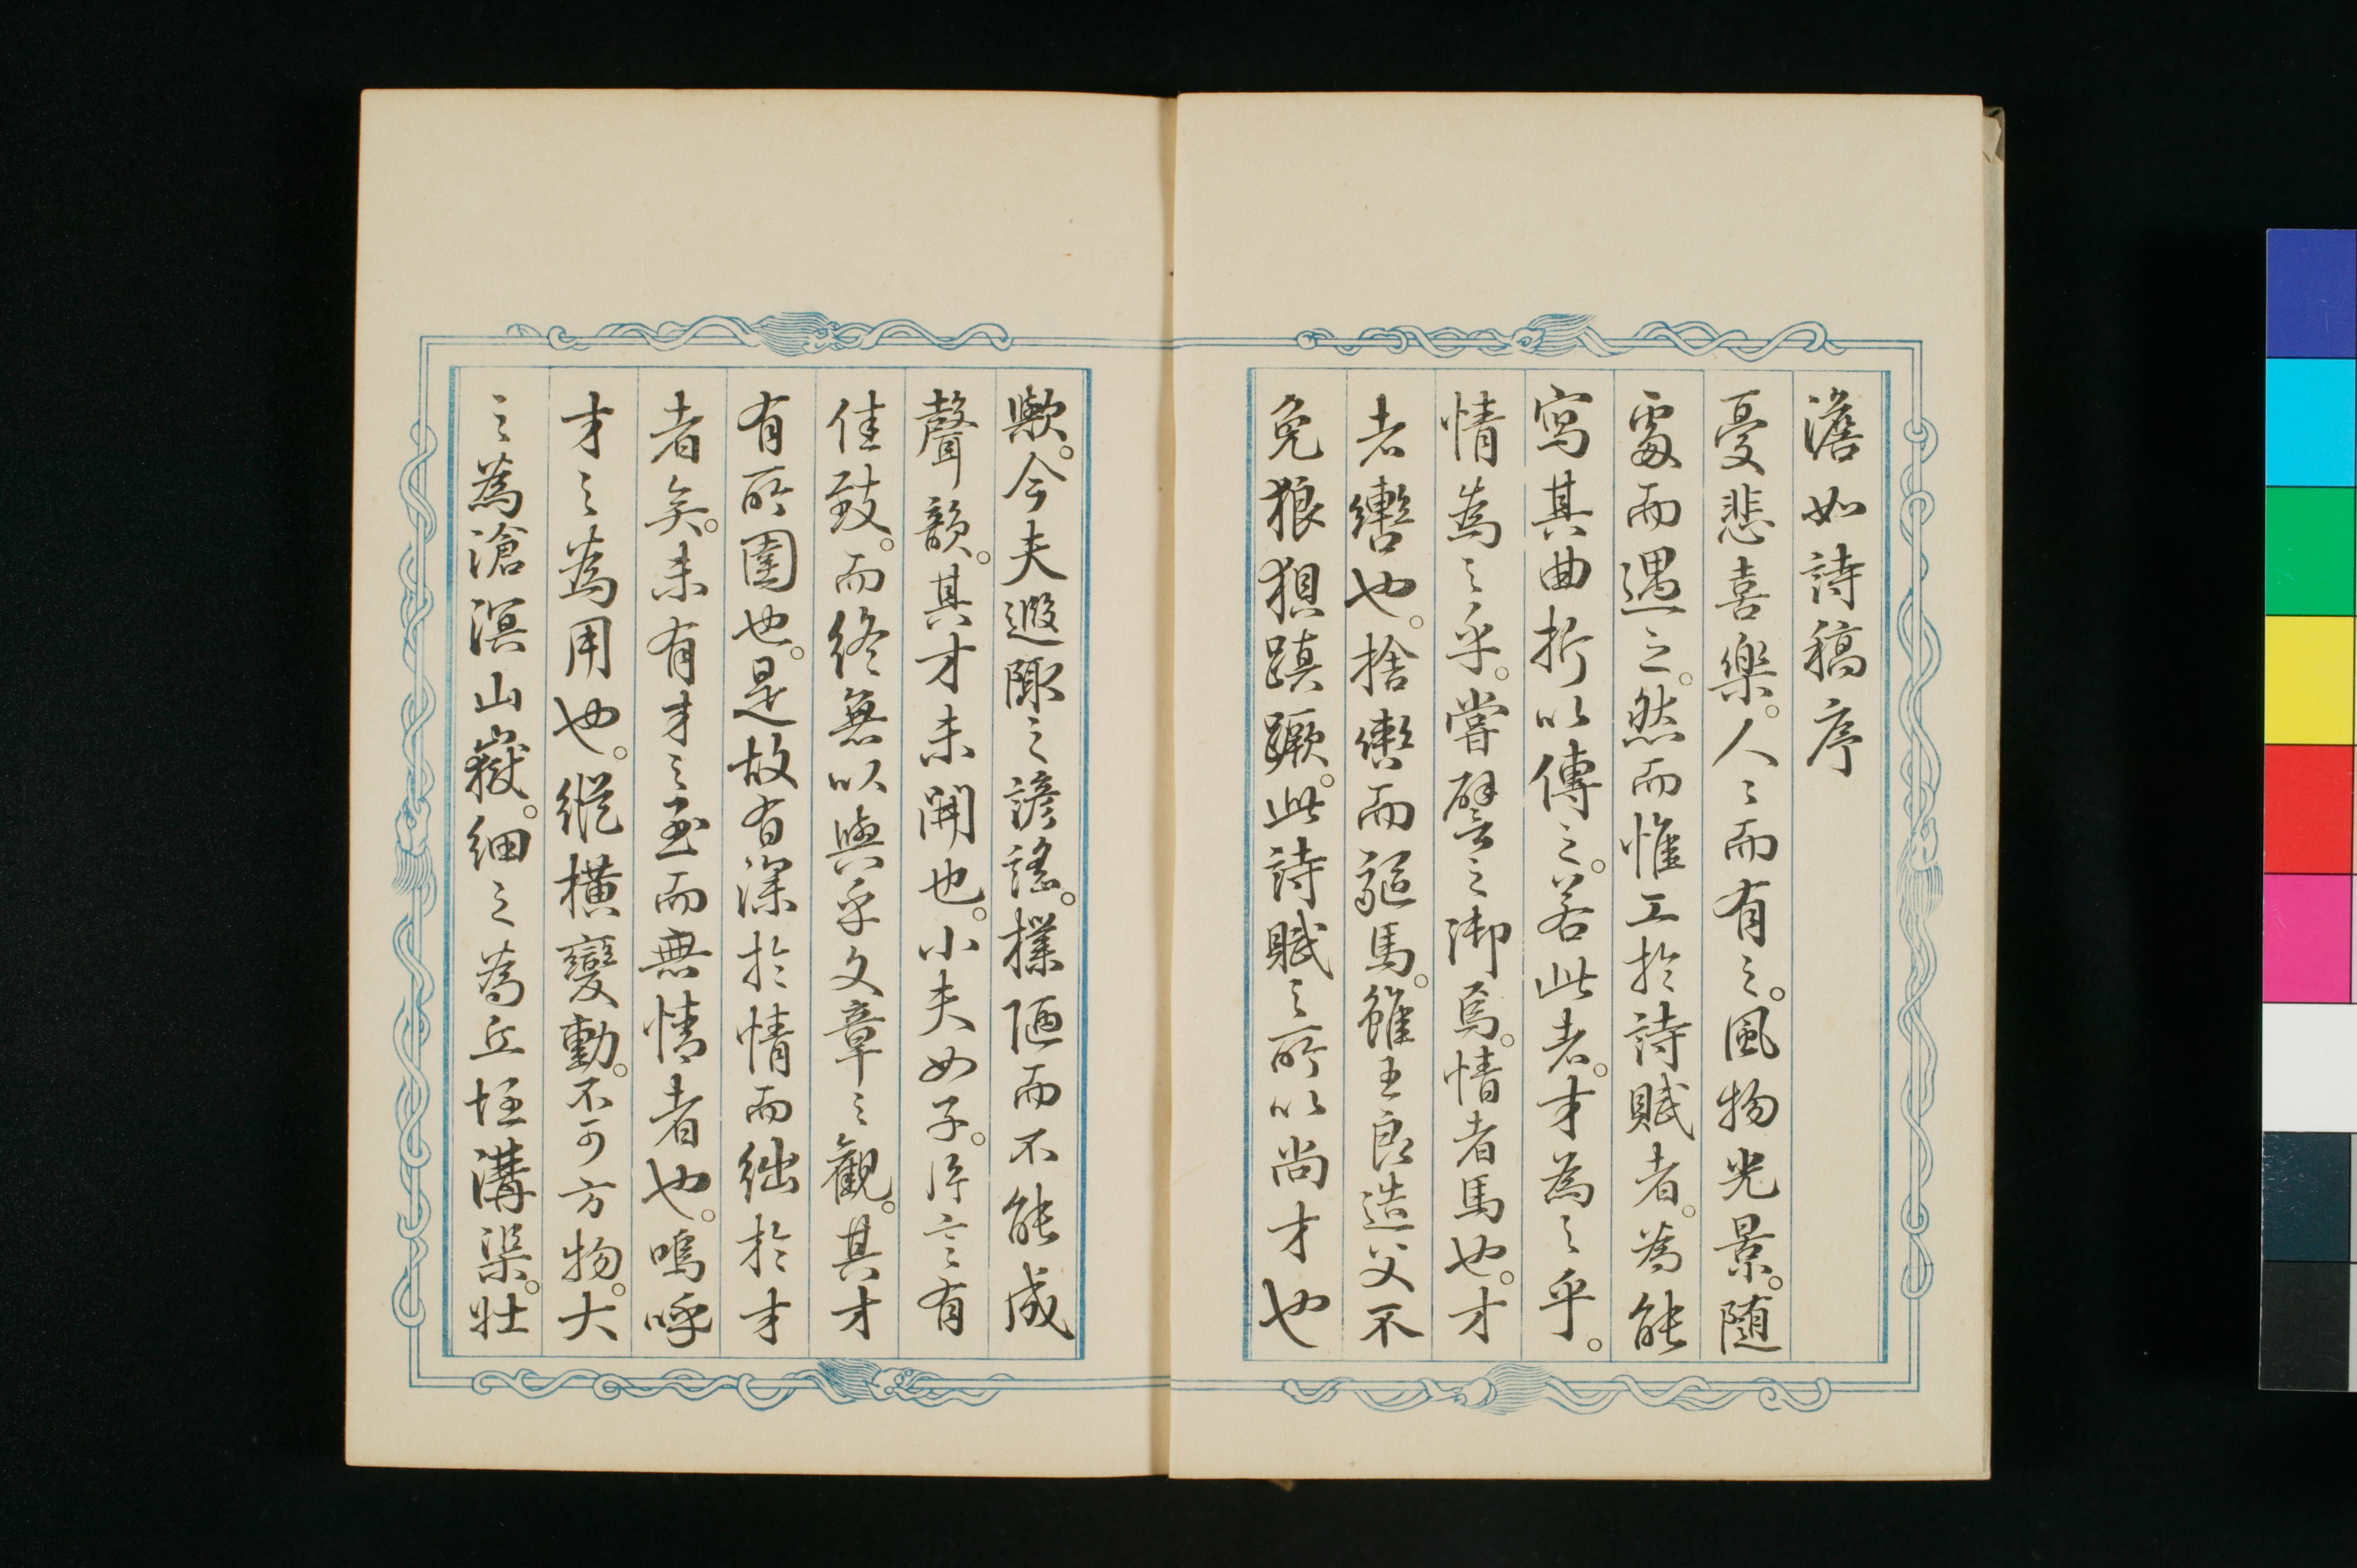 澹如詩稿序
憂悲喜樂。人〻而有之。風物光景。随
處而遇之。然而惟工於詩賦者。為能
寫其曲折以傳之。若此者。才為之乎。
情為之乎。嘗譬之御焉。情者馬也。才
者轡也。捨轡而驅馬。雖王良造父不
免狼狽蹎蹶。此詩賦之所以尚才也
歟。今夫遐陬之諺謠。樸陋而不能成
聲韻。其才未開也。小夫女子。片言有
佳致。而終無以與乎文章之觀。其才
有所囿也。是故有深於情而絀於才
者矣。未有才之至而無情者也。嗚呼
才之為用也。縱橫變動。不可方物。大
之為滄溟山嶽。細之為丘垤溝渠。壯